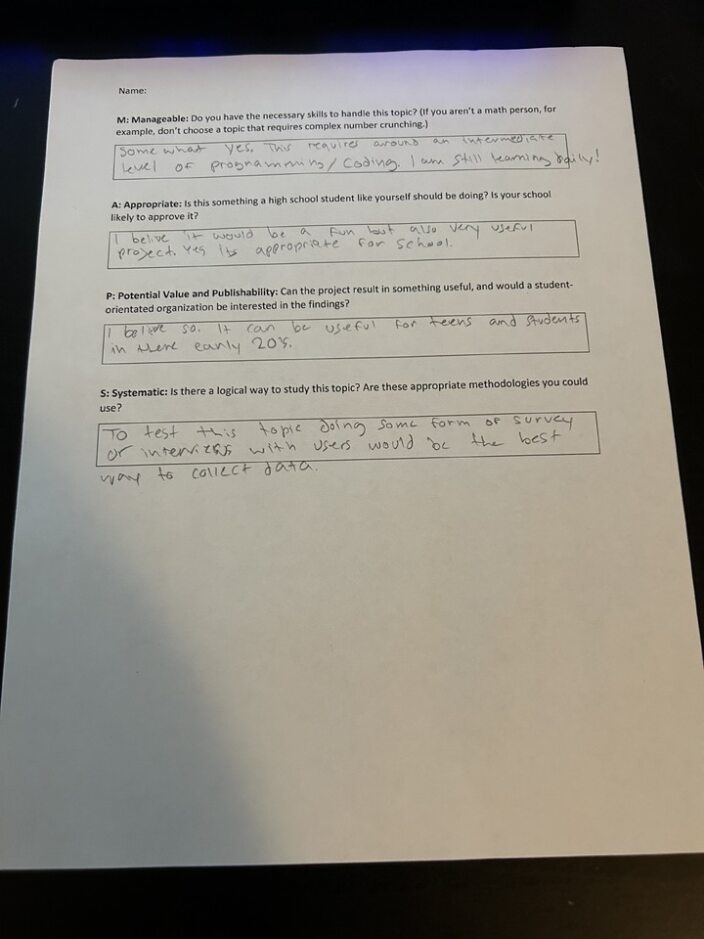 Name:
M: Manageable: Do you have the necessary skills to handle this topic? (If you aren't a math person, for
example, don't choose a topic that requires complex number crunching.)
Somewhat yes. This requires around an intermediate
level of programming/Coding. I am still learning daily!
A: Appropriate: Is this something a high school student like yourself should be doing? Is your school
likely to approve it?
I belive it would be a fun but also very useful
project. Yes its appropriate for school.
P: Potential Value and Publishability: Can the project result in something useful, and would a student-
orientated organization be interested in the findings?
I believe so. It can be useful for teens and students
in there early 20's.
S: Systematic: Is there a logical way to study this topic? Are these appropriate methodologies you could
use?
To test this topic doing some form of survey
or interviews with users would be the best
way to collect data.